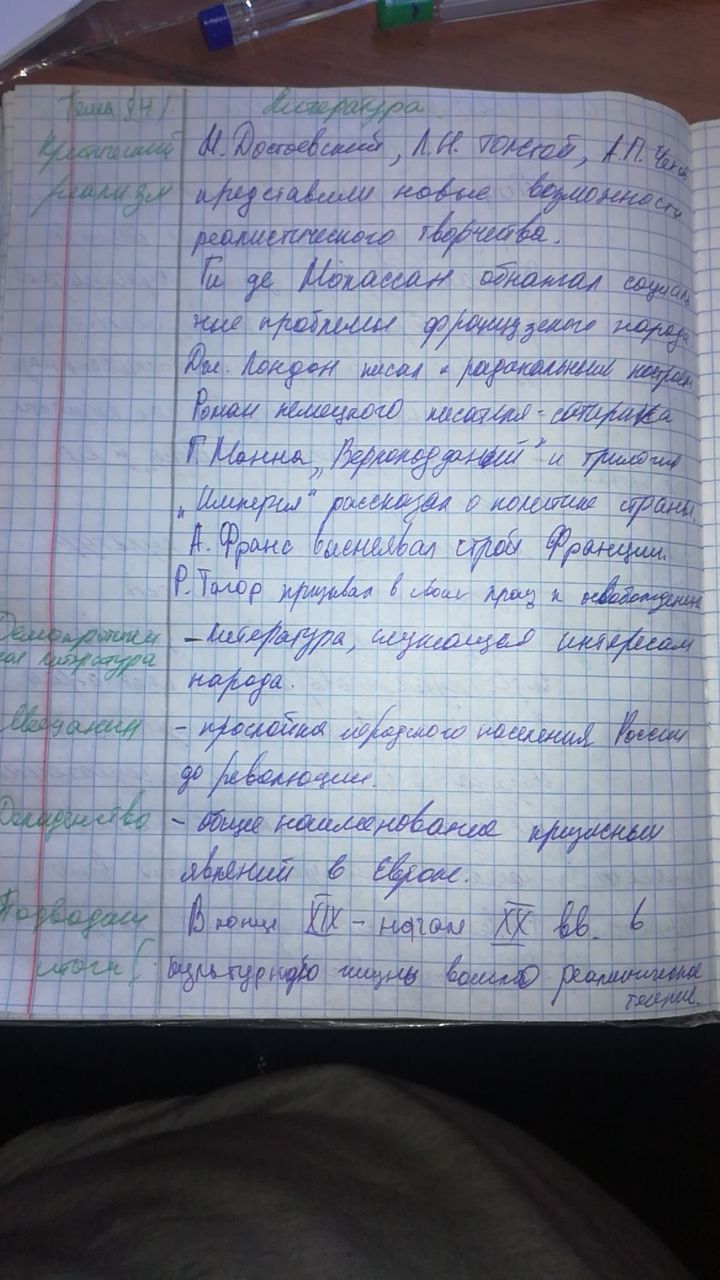 Литература.
Критический
реализм
Достоевский, Л.Н. Толстой, А.П. Чехов
представили новые возможности
реалистического творчества.
Ги де Мопассан обнажал социаль
ные проблемы французского народа
Дж. Лондон писал с радикальным
Роман немецкого писателя-сатирика
Г. Манна „Верноподданный" и трилогия
„Империя" рассказал о политике страны.
А. Франс высмеивал строй Франции.
Р. Тагор призывал в своих к освобождению
Демократичес
кая литература
– литература, служащая интересам
народа.
Мещанин
– прослойка городского населения России
до революции.
Декаденство
– общее наименование кризисных
явлений в Европе.
Подводим
итоги!
В конце XIX – начале XX вв. в
культурную жизнь вошло реалистическое
течение.